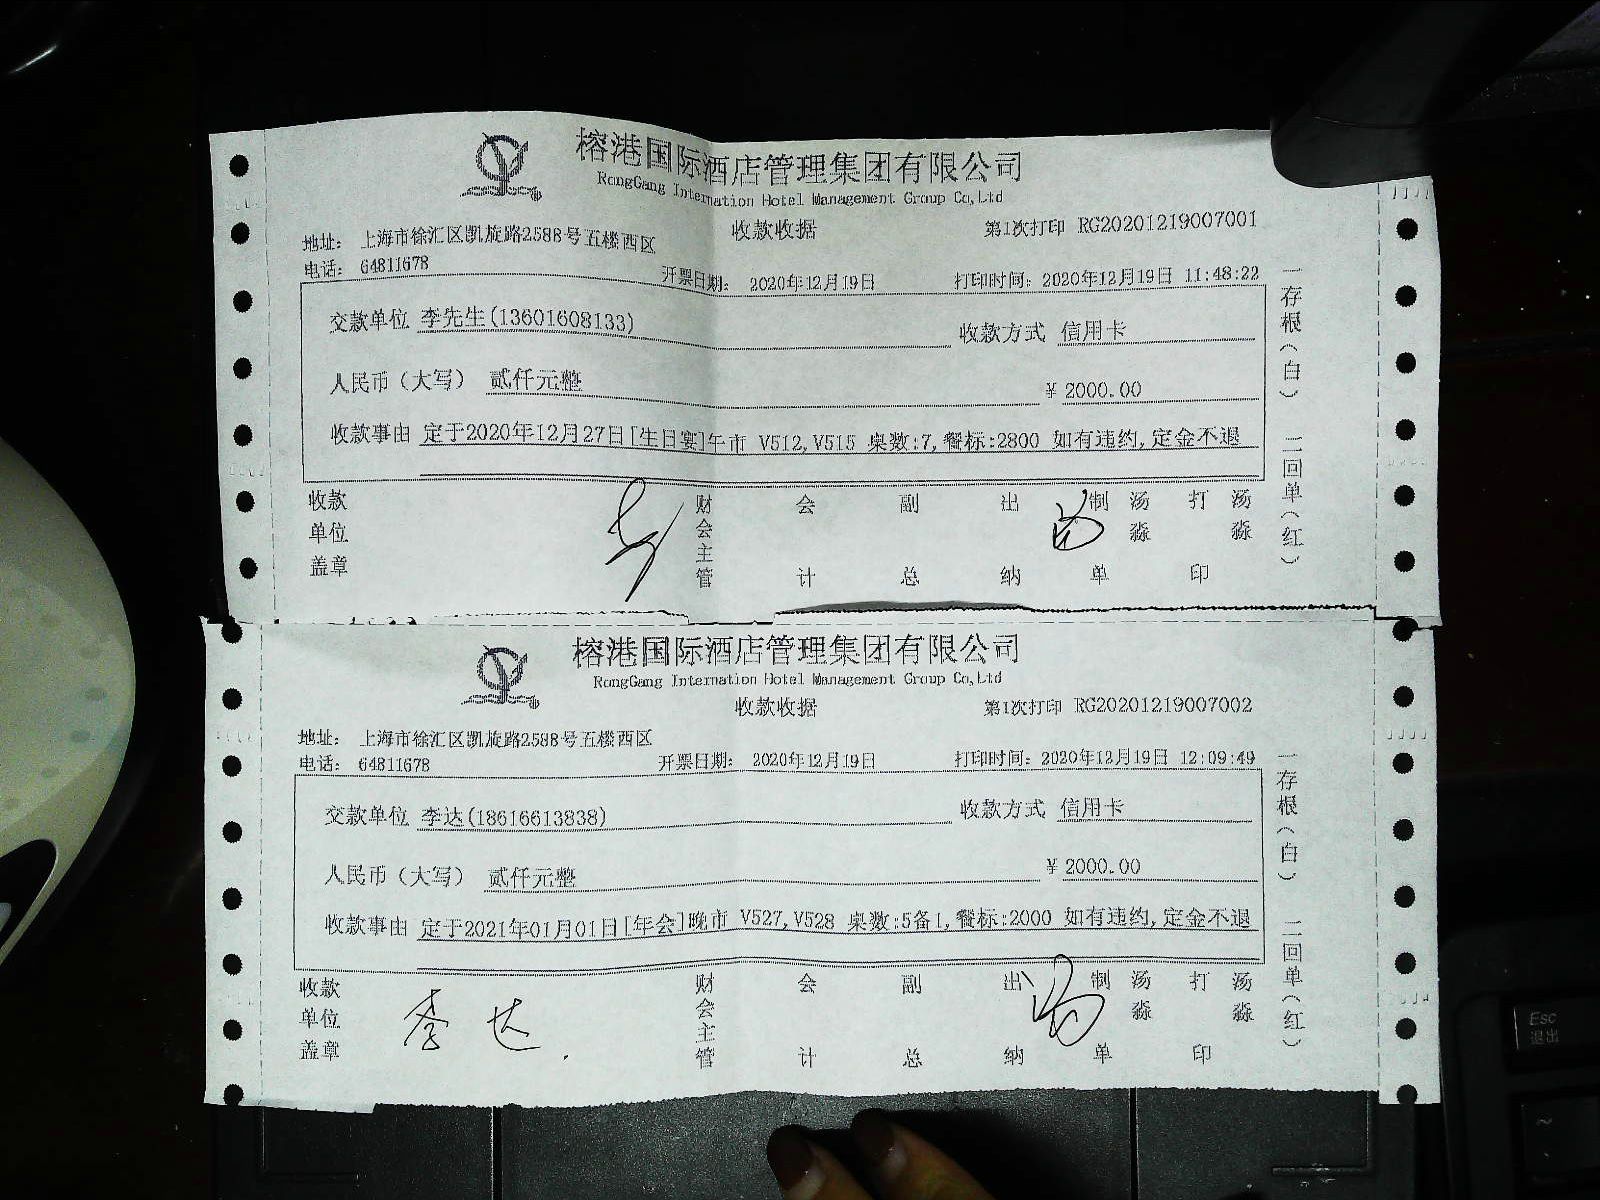 榕港国际酒店管理集团有限公司
RongGang Internation Hotel Management Group Co,Ltd
收款收据 第1次打印 RG20201219007001
地址: 上海市徐汇区凯旋路2588号五楼西区
电话: 64811678 开票日期: 2020年12月19日 打印时间: 2020年12月19日 11:48:22
交款单位 李先生(13601608133) 收款方式 信用卡
人民币(大写) 贰仟元整 ¥ 2000.00
收款事由 定于2020年12月27日[生日宴]午市 V512,V515 桌数:7,餐标:2800 如有违约,定金不退
收款单位盖章 财会主管 会计 副总 出纳 制单 汤淼 打印 汤淼
一存根(白) 二回单(红)
榕港国际酒店管理集团有限公司
RongGang Internation Hotel Management Group Co,Ltd
收款收据 第1次打印 RG20201219007002
地址: 上海市徐汇区凯旋路2588号五楼西区
电话: 64811678 开票日期: 2020年12月19日 打印时间: 2020年12月19日 12:09:49
交款单位 李达(18616613838) 收款方式 信用卡
人民币(大写) 贰仟元整 ¥ 2000.00
收款事由 定于2021年01月01日[年会]晚市 V527,V528 桌数:5备1,餐标:2000 如有违约,定金不退
收款单位盖章 李达 财会主管 会计 副总 出纳 制单 汤淼 打印 汤淼
一存根(白) 二回单(红)
Esc
退出
~